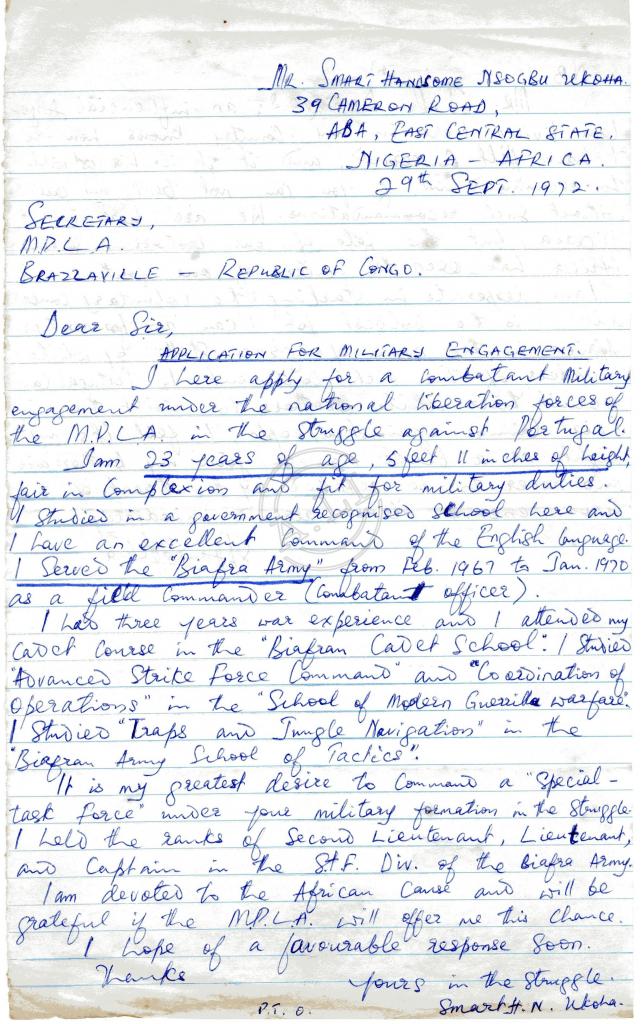 Mr. Smart Handsome Nsogbu Ukoha.
39 Cameron Road,
Aba, East Central State.
Nigeria - Africa.
29th Sept. 1972.
Secretary,
M.P.L.A.
Brazzaville - Republic of Congo.
Dear Sir,
Application for Military Engagement.
I here apply for a combatant Military
engagement under the national liberation forces of
the M.P.L.A. in the struggle against Portugal.
I am 23 years of age, 5 feet 11 inches of height,
fair in complexion and fit for military duties.
I studied in a government recognised school here and
I have an excellent command of the English language.
I served the "Biafra Army" from Feb. 1967 to Jan. 1970
as a field commander (combatant officer).
I had three years war experience and I attended my
cadet course in the "Biafran Cadet School". I studied
"Advanced Strike Force Command" and "Coordination of
Operations" in the "School of Modern Guerrilla warfare".
I studied "Traps and Jungle Navigation" in the
"Biafran Army School of Tactics".
It is my greatest desire to command a "Special-
task force" under your military formation in the struggle.
I held the ranks of Second Lieutenant, Lieutenant,
and Captain in the S.T.F. Div. of the Biafra Army.
I am devoted to the African Cause and will be
grateful if the M.P.L.A. will offer me this chance.
I hope of a favourable response soon.
Thanks
Yours in the struggle.
P.T.O.
Smart H. N. Ukoha.